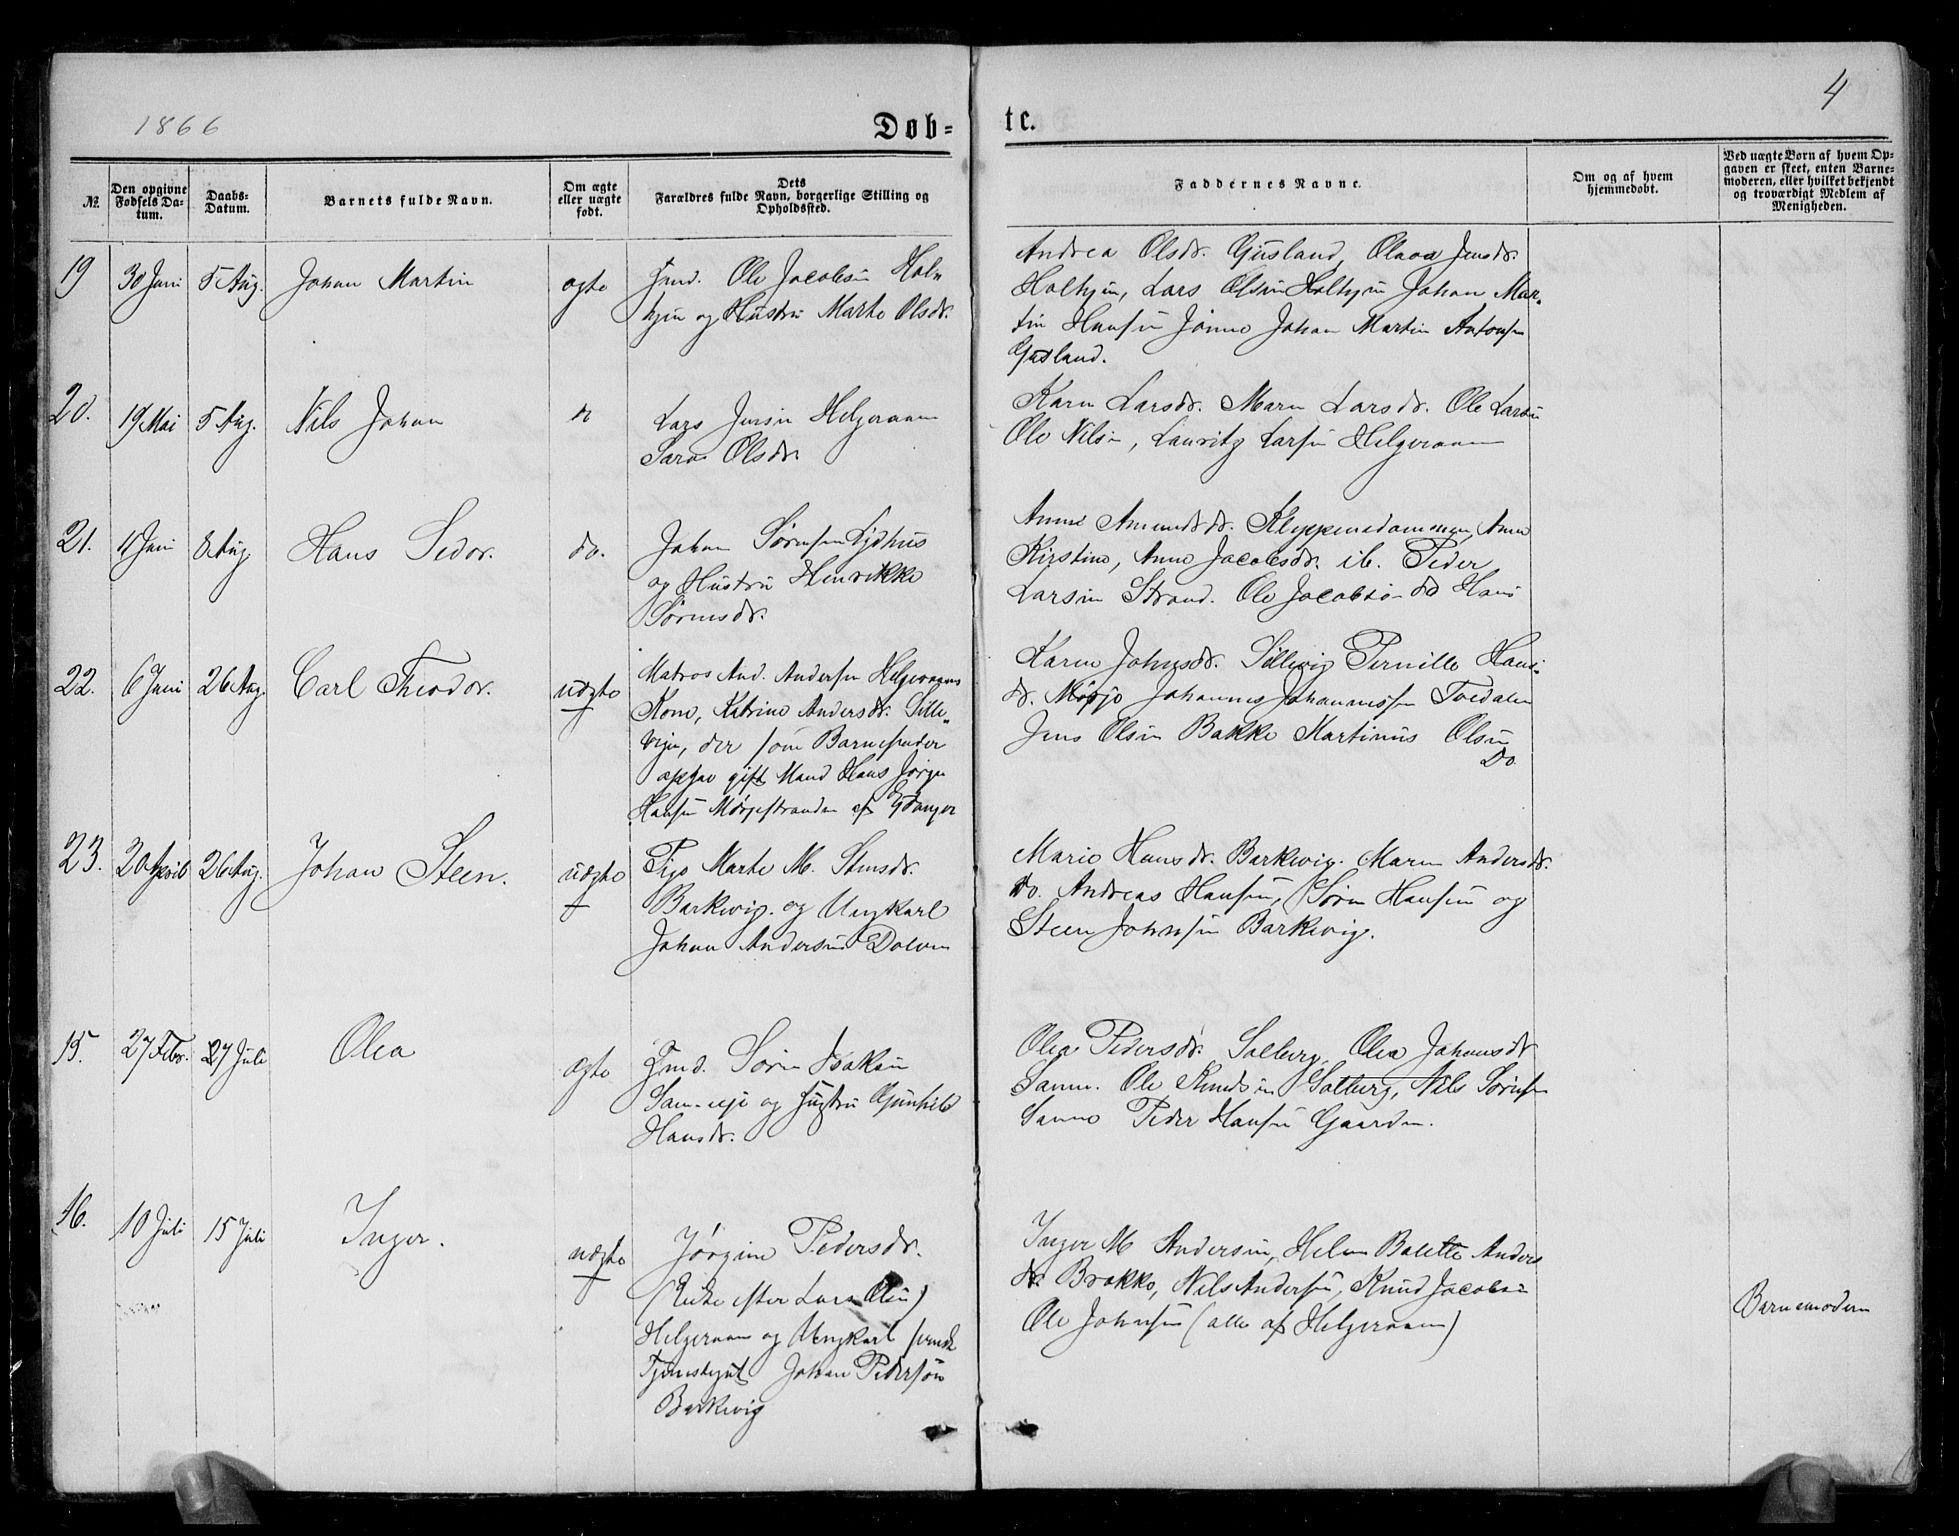 1866
Døb-
te.
4
№
Den opgivne
Fødsels Da-
tum.
Daabs-
Datum.
Barnets fulde Navn.
Om ægte
eller uægte
født.
Dets
Forældres fulde Navn, borgerlige Stilling og
Opholdssted.
Faddernes Navne.
Om og af hvem
hjemmedøbt.
Ved uægte Børn af hvem Op-
gaven er skeet, enten Barne-
moderen, eller hvilket bekjendt
og troværdigt Medlem af
Menigheden.
19
30 Juni
5 Aug.
Johan Martin
ægte
Ole Jacobsen Hol-
og Hustru Marte Olsdr.
Andrea Olsdr. Gusland, Olava Jensdr.
Lars Olsen Johan Mar-
tin Hansen Johan Martin Antonsen
Gusland.
20.
19 Mai
5 Aug.
Nils Johan
do
Lars Jensen Helgeroaen
Sara Olsdr.
Karn Larsdr. Maren Larsdr. Ole Larsen
Ole Nilsen, Lauritz Larsen Helgeroaen
21.
11 Juni
8 Aug.
Hans Sedor.
do.
Johan Sørensen Sydhus
og Hustru Henrikke
Sørensdr.
Anne Amundsdr. Kleppensdammen, Anne
Kirstine, Anne Jacobsdr. ib. Peder
Larsen Strand. Ole Jacobsen do Hans
22.
6 Juni
26 Aug.
Carl Theodor.
uægte
Matros And. Andersen Helgeroaens
Kone, Katrine Andersdr. Sille-
vigen, der som Barnefader
opgav gift Mand Hans Jørgen
Hansen Mørjestranden af Eidanger
Karen Johnsdr. Sillevig Pernille Hans-
dr. Mørje Johannes Johannessen Tvedalen
Jens Olsen Bakke Martinus Olsen
Do
23.
20 April
26 Aug.
Johan Steen.
uægte
Pige Marte M. Stensdr.
Barkevig. og Ungkarl
Johan Andersen Dolven
Marie Hansdr. Barkevig. Maren Andersdr.
do. Andreas Hansen, Søren Hansen og
Steen Johnsen Barkevig.
15.
27 Febr.
27 Juli
Olea
ægte
Søren Isaksen
Sanneeje og Hustru Gunhild
Hansdr.
Olea Pedersdr. Solberg Olea Johansdr
Sanne. Ole Knudsen Solberg, Nils Sørensen
Sanne Peder Hansen Gaarden.
16.
10 Juli
15 Juli
Inger.
uægte
Jørgine Pedersdr.
(Enke efter Lars Olsen)
Helgeroaen og Ungkarl
Tjenestegut Johan Pedersøn
Barkevig
Inger M Andersen, Helene Bolette Anders
dr Brakke, Nils Andersen, Knud Jacobsen
Ole Johnsen (alle af Helgeroaen)
Barnemoderen